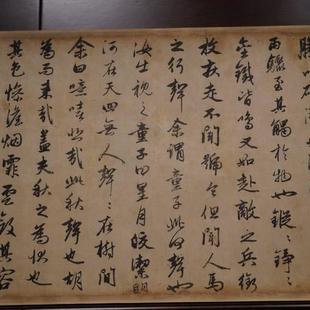 雨驟至其觸於物也鏦〻錚〻
金鐵皆鳴又如赴敵之兵銜
枚疾走不聞號令但聞人馬
之行聲余謂童子此何聲也
汝出視之童子曰星月皎潔明
河在天四無人聲〻在樹間
余曰噫嘻悲哉此秋聲也胡
為而來哉蓋夫秋之為狀也
其色慘澹烟霏雲斂其容